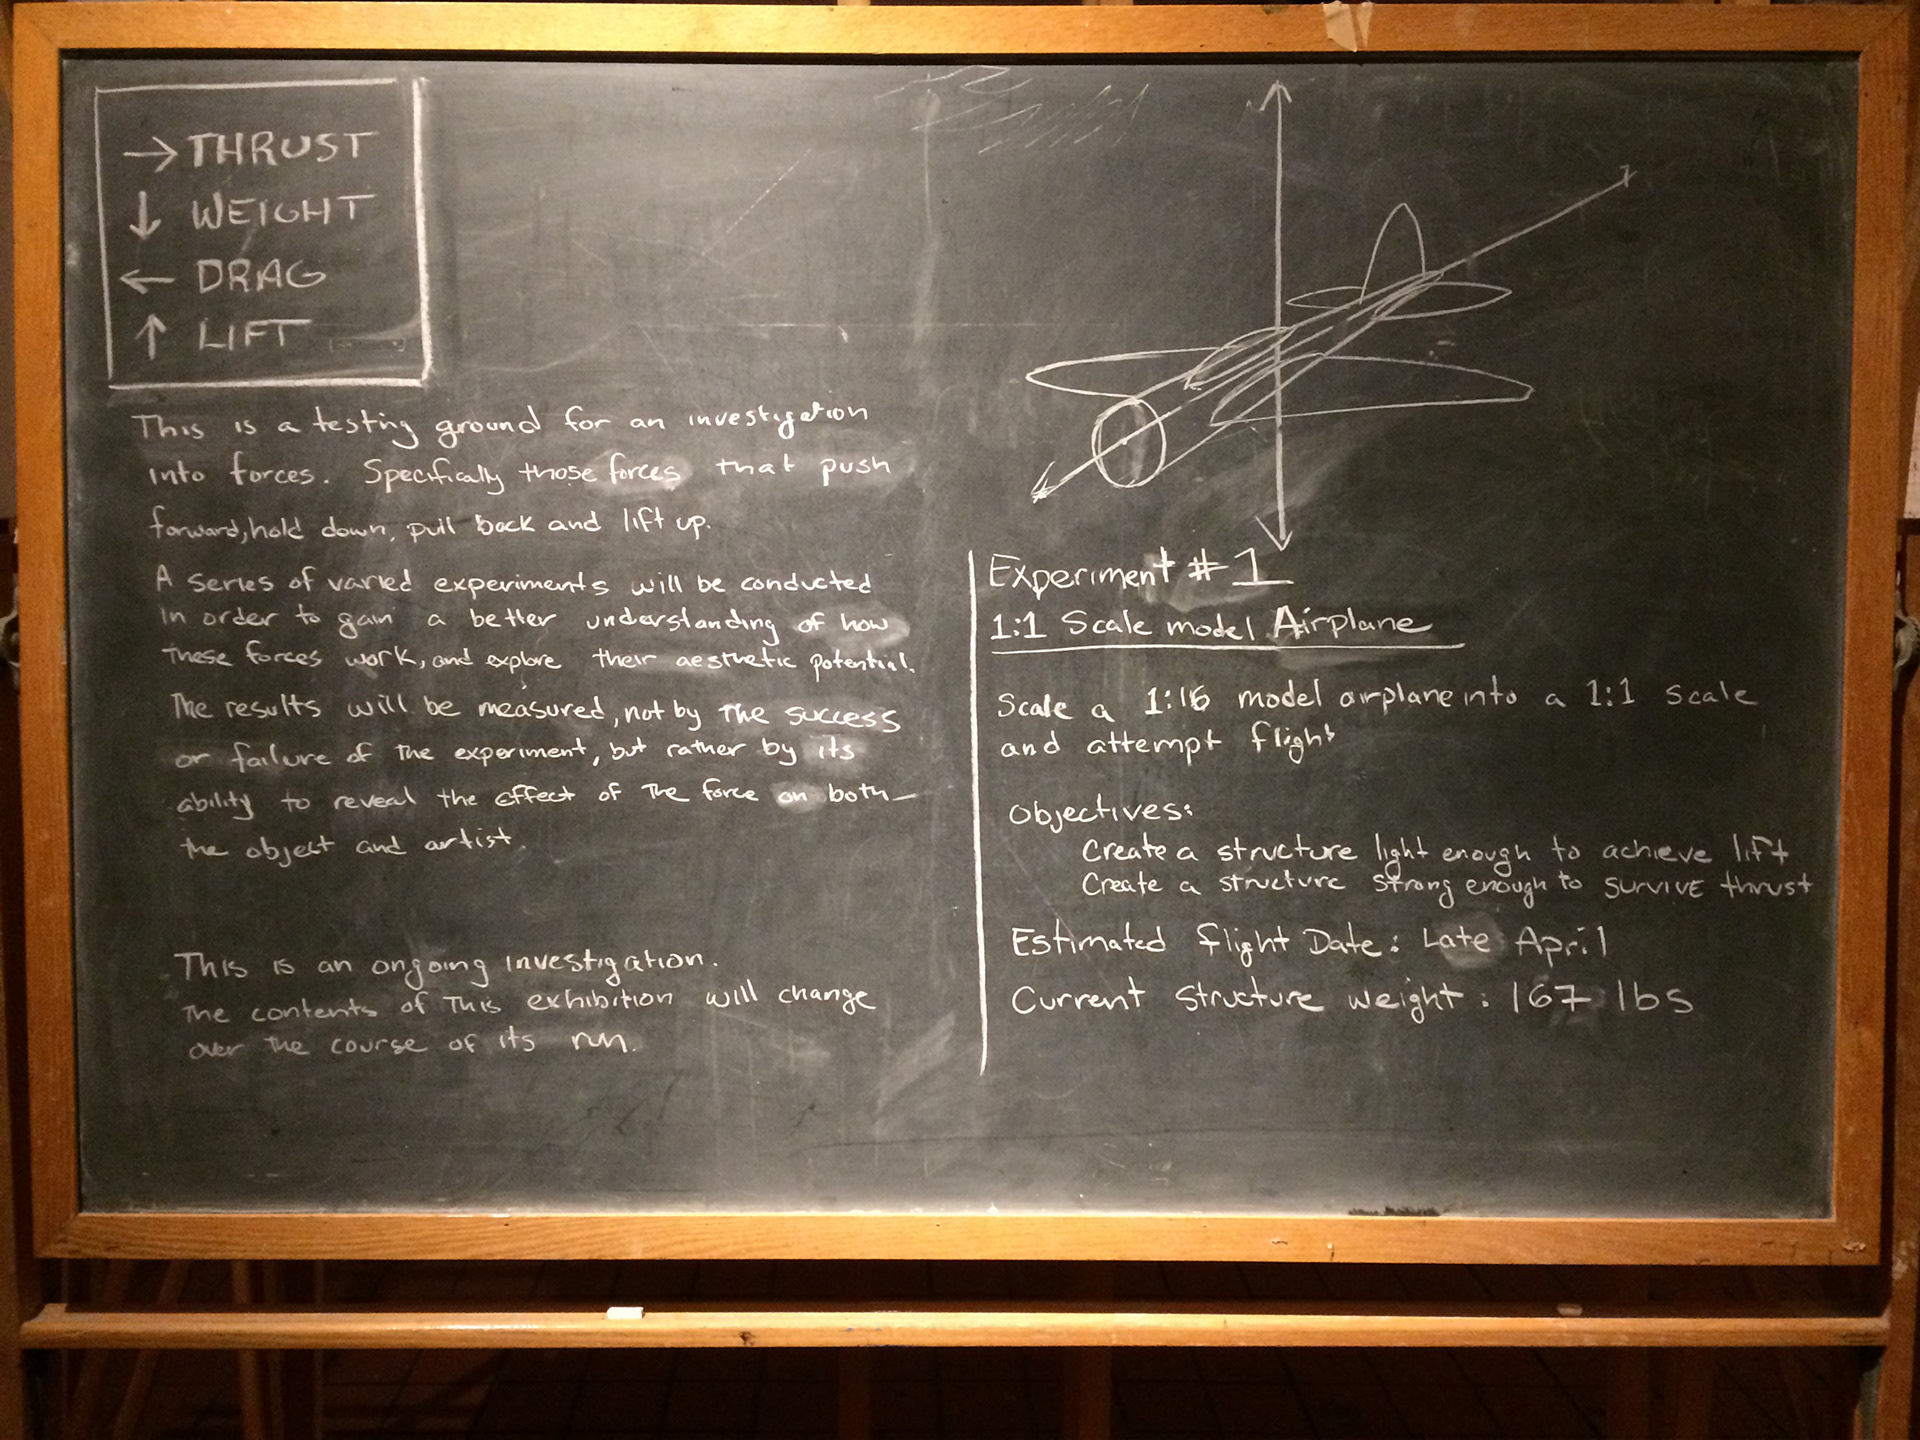 → THRUST
↓ WEIGHT
← DRAG
↑ LIFT
This is a testing ground for an investigation
into forces. Specifically those forces that push
forward, hold down, pull back and lift up.
A series of varied experiments will be conducted
in order to gain a better understanding of how
these forces work, and explore their aesthetic potential.
The results will be measured, not by the success
or failure of the experiment, but rather by its
ability to reveal the effect of the force on both
the object and artist.
This is an ongoing investigation.
The contents of this exhibition will change
over the course of its run.
Experiment # 1
1:1 Scale model Airplane
Scale a 1:16 model airplane into a 1:1 scale
and attempt flight
Objectives:
Create a structure light enough to achieve lift
Create a structure strong enough to survive thrust
Estimated flight Date: Late April
Current structure weight: 167 lbs